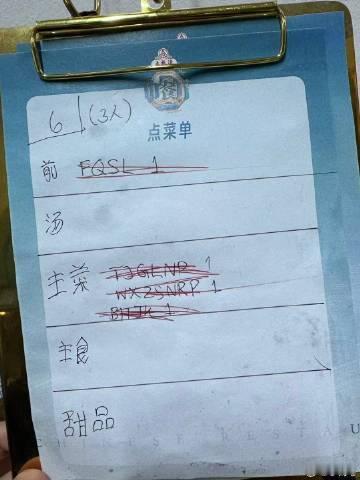 餐
点菜单
6 (3人)
前 FQSL 1
汤
主菜 TJGLNP 1
WXZSNRP 1
主食
甜品
CHINESE RESTAU